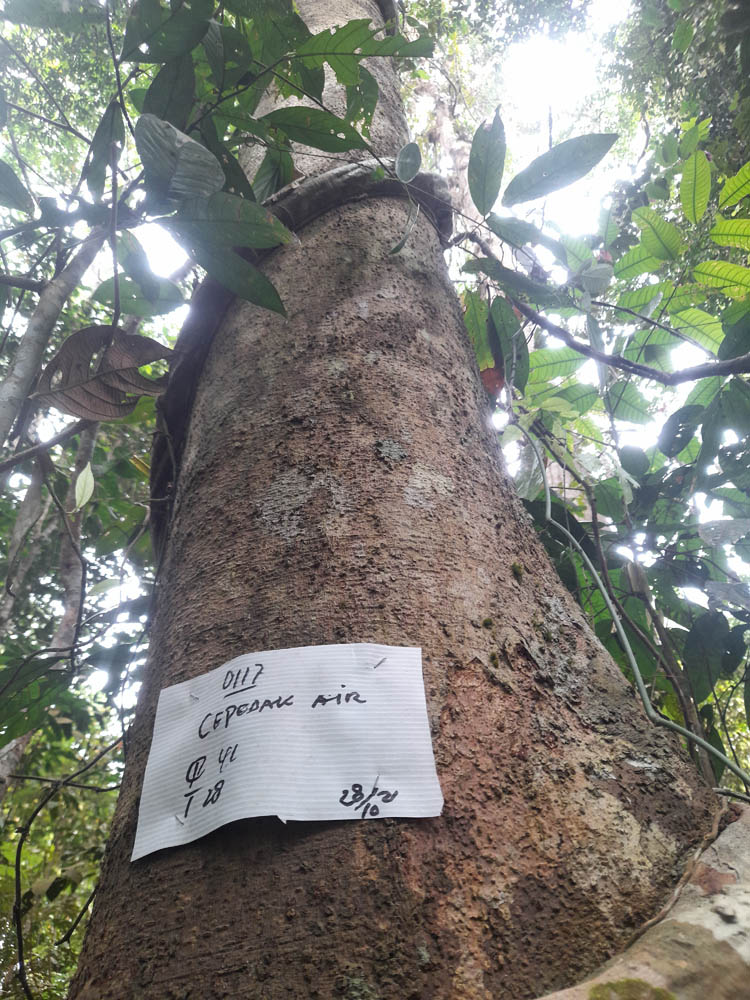 0117
CEPEDAK AIR
Φ 41
T 28
28/10